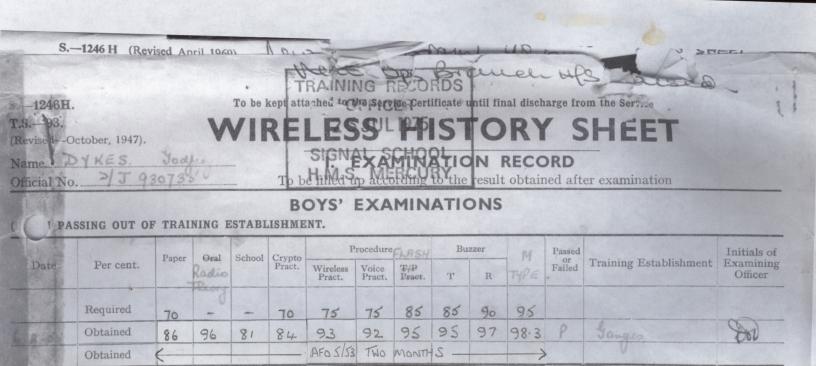 S.—1246 H (Revised April 1960)
TRAINING RECORDS
S.—1246H. To be kept attached to the Service Certificate until final discharge from the Service
OFFICER
T.S.—93.
JUL 1975
WIRELESS HISTORY SHEET
(Revised—October, 1947).
SIGNAL SCHOOL
Name DYKES.
EXAMINATION RECORD
H.M.S. MERCURY
Official No. P/J 930735
To be filled up according to the result obtained after examination
BOYS' EXAMINATIONS
PASSING OUT OF TRAINING ESTABLISHMENT.
Date Per cent. Paper Oral Radio Theory School Crypto Pract. Procedure Wireless Pract. Voice Pract. FLASH T/P Pract. Buzzer T R M TYPE. Passed or Failed Training Establishment Initials of Examining Officer
Required 70 - - 70 75 75 85 85 90 95
Obtained 86 96 81 84 93 92 95 95 97 98.3 P Ganges
Obtained AFO 5/53 TWO MONTHS